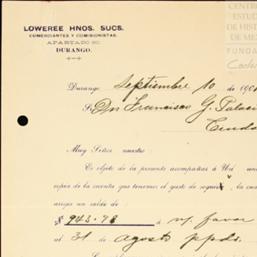 LOWEREE HNOS. SUCS.
COMERCIANTES Y COMISIONISTAS.
APARTADO
DURANGO.
CENTRO
ESTUD
DE HIST
DE ME
FUNDA
Durango, Septiembre 10 de 190
Sr. Dn Francisco G. Palaci
Ciuda
Muy Señor nuestro:
Es objeto de la presente acompañar á Vd. una
copia de la cuenta que tenemos el gusto de seguir, la cual
arroja un saldo de
$ 943.78 á m/ favor
al 31 de agosto ppdo.